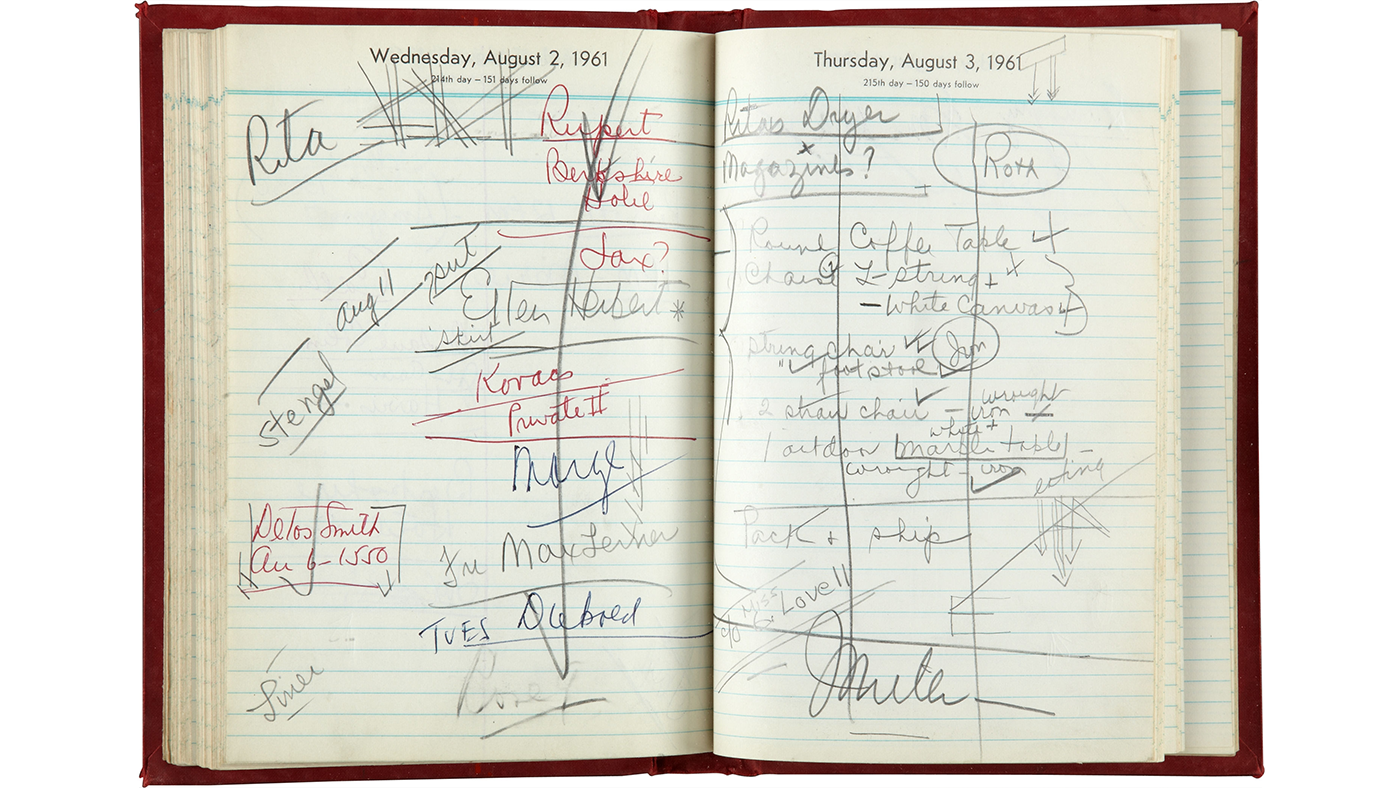 Wednesday, August 2, 1961
214th day – 151 days follow
Rita
Rupert
Berkshire
Hotel
Jax?
Aug 11
Ellen Herbert *
skirt
Stengel
Kovacs
Private II
Marge
Delos Smith
Au 6-1550
Max Lerner
TUES Diebold
Thursday, August 3, 1961
215th day – 150 days follow
Rita's Dryer
Magazines?
Roth
Round Coffee Table
L-string +
– White Canvas
string chair Iron
" footstool
2 straw chair – wrought iron
1 outdoor white + marble table –
wrought – iron
eating
Pack + ship
c/o Miss Lovell